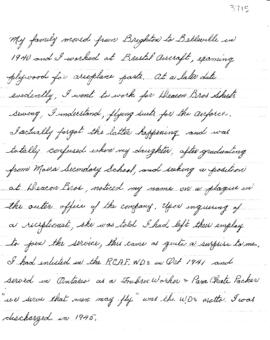 3715
My family moved from Brighton to Belleville in
1940 and I worked at Bristol Aircraft, spanning
plywood for aeroplane parts. At a later date
evidently, I went to work for Deacon Bros Shirts
sewing, I understand, flying suits for the Airforce.
I actually forgot the latter happening and was
totally confused when my daughter, after graduating
from Moira Secondary School, and seeking a position
at Deacon Bros, noticed my name on a plaque in
the outer office of the company. Upon inquiring of
a receptionist, she was told I had left their employ
to join the service, this came as quite a surprise to me.
I had enlisted in the RCAF WDs in Oct 1941 and
served in Ontario as a Worker & Para Chute Packer
"we serve that men may fly" was the WDs motto. I was
discharged in 1945.